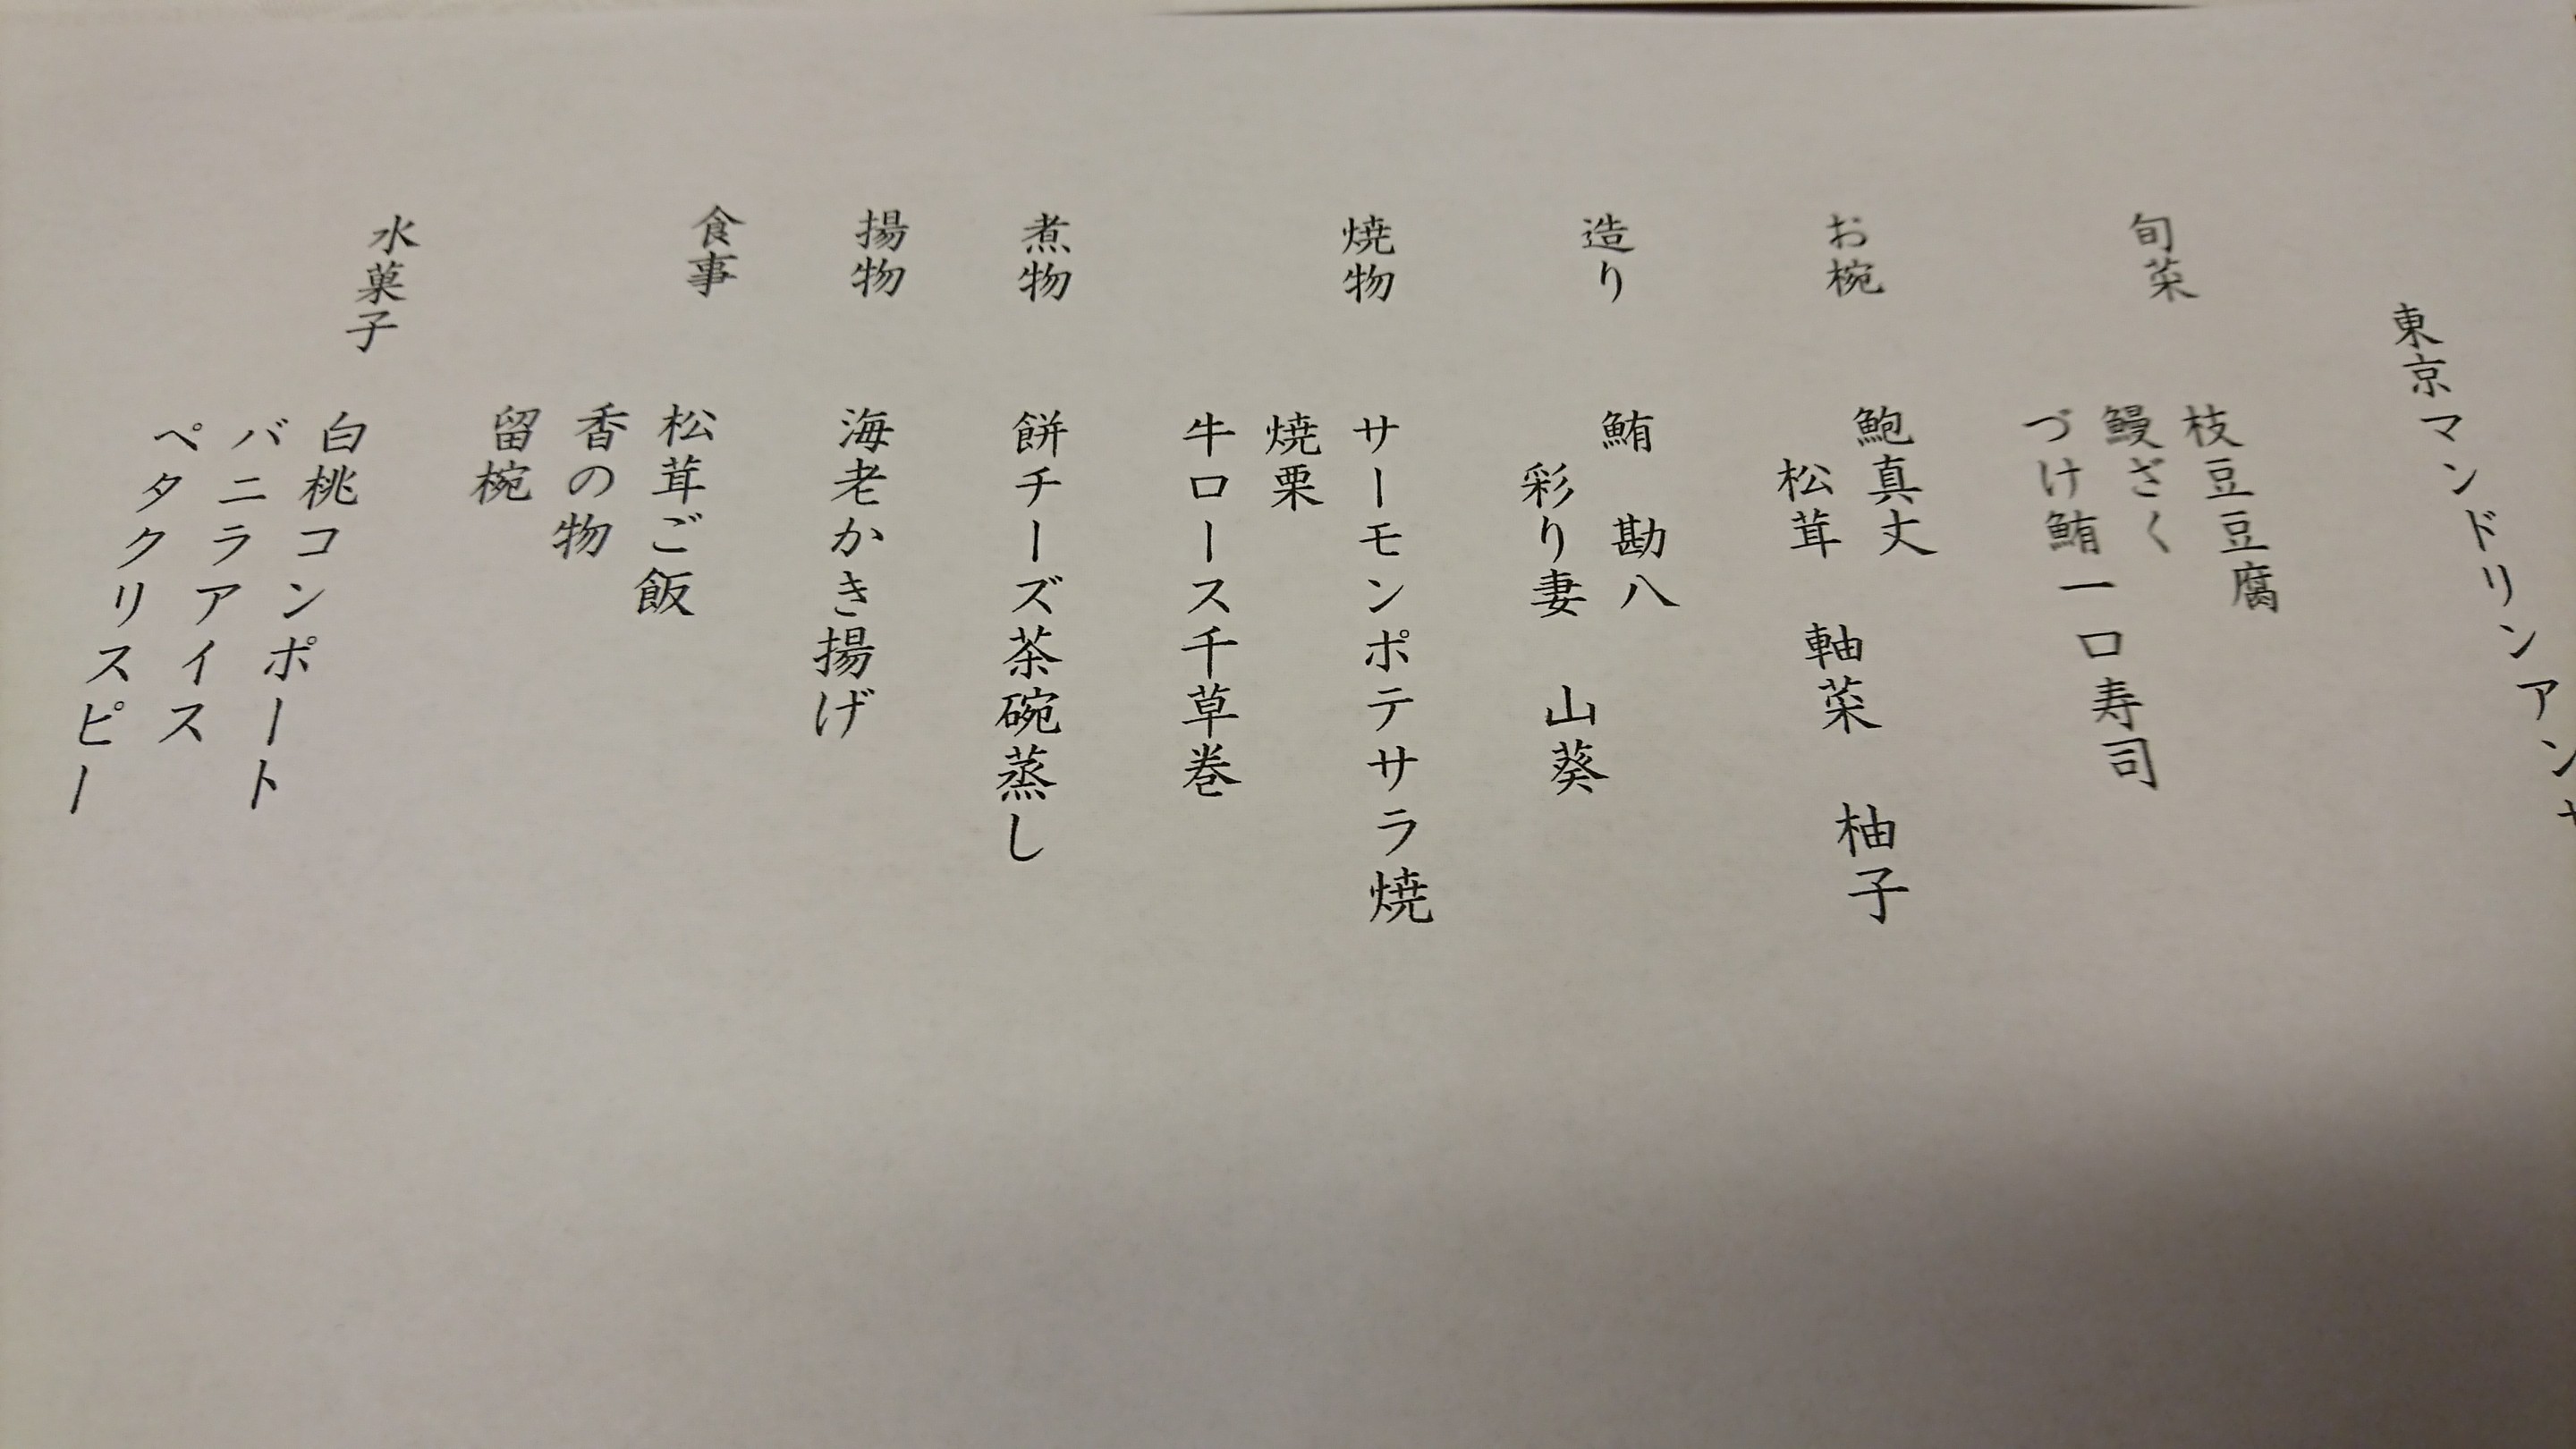 東京マンドリンアンサ
旬菜
枝豆豆腐
鰻ざく
づけ鮪一口寿司
お椀
鮑真丈
松茸　軸菜　柚子
造り
鮪　勘八
彩り妻　山葵
焼物
サーモンポテサラ焼
焼栗
牛ロース千草巻
煮物
餅チーズ茶碗蒸し
揚物
海老かき揚げ
食事
松茸ご飯
香の物
留椀
水菓子
白桃コンポート
バニラアイス
ペタクリスピー